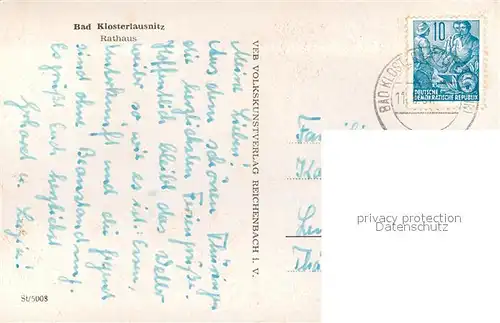 Bad Klosterlausnitz
Rathaus
Meine Lieben!
Aus dem schönen Thüringen
die herzlichsten Feriengrüße.
Hoffentlich bleibt das Wetter
weiter so wie es ist. Essen,
Unterkunft und die Gegend
sind ohne Beanstandung.
Es grüßt Euch herzlichst
Gerhard u.
St/5003
VEB VOLKSKUNSTVERLAG REICHENBACH i. V.
10
DEUTSCHE
DEMOKRATISCHE REPUBLIK
BAD KLOSTE
11
Fa
privacy protection